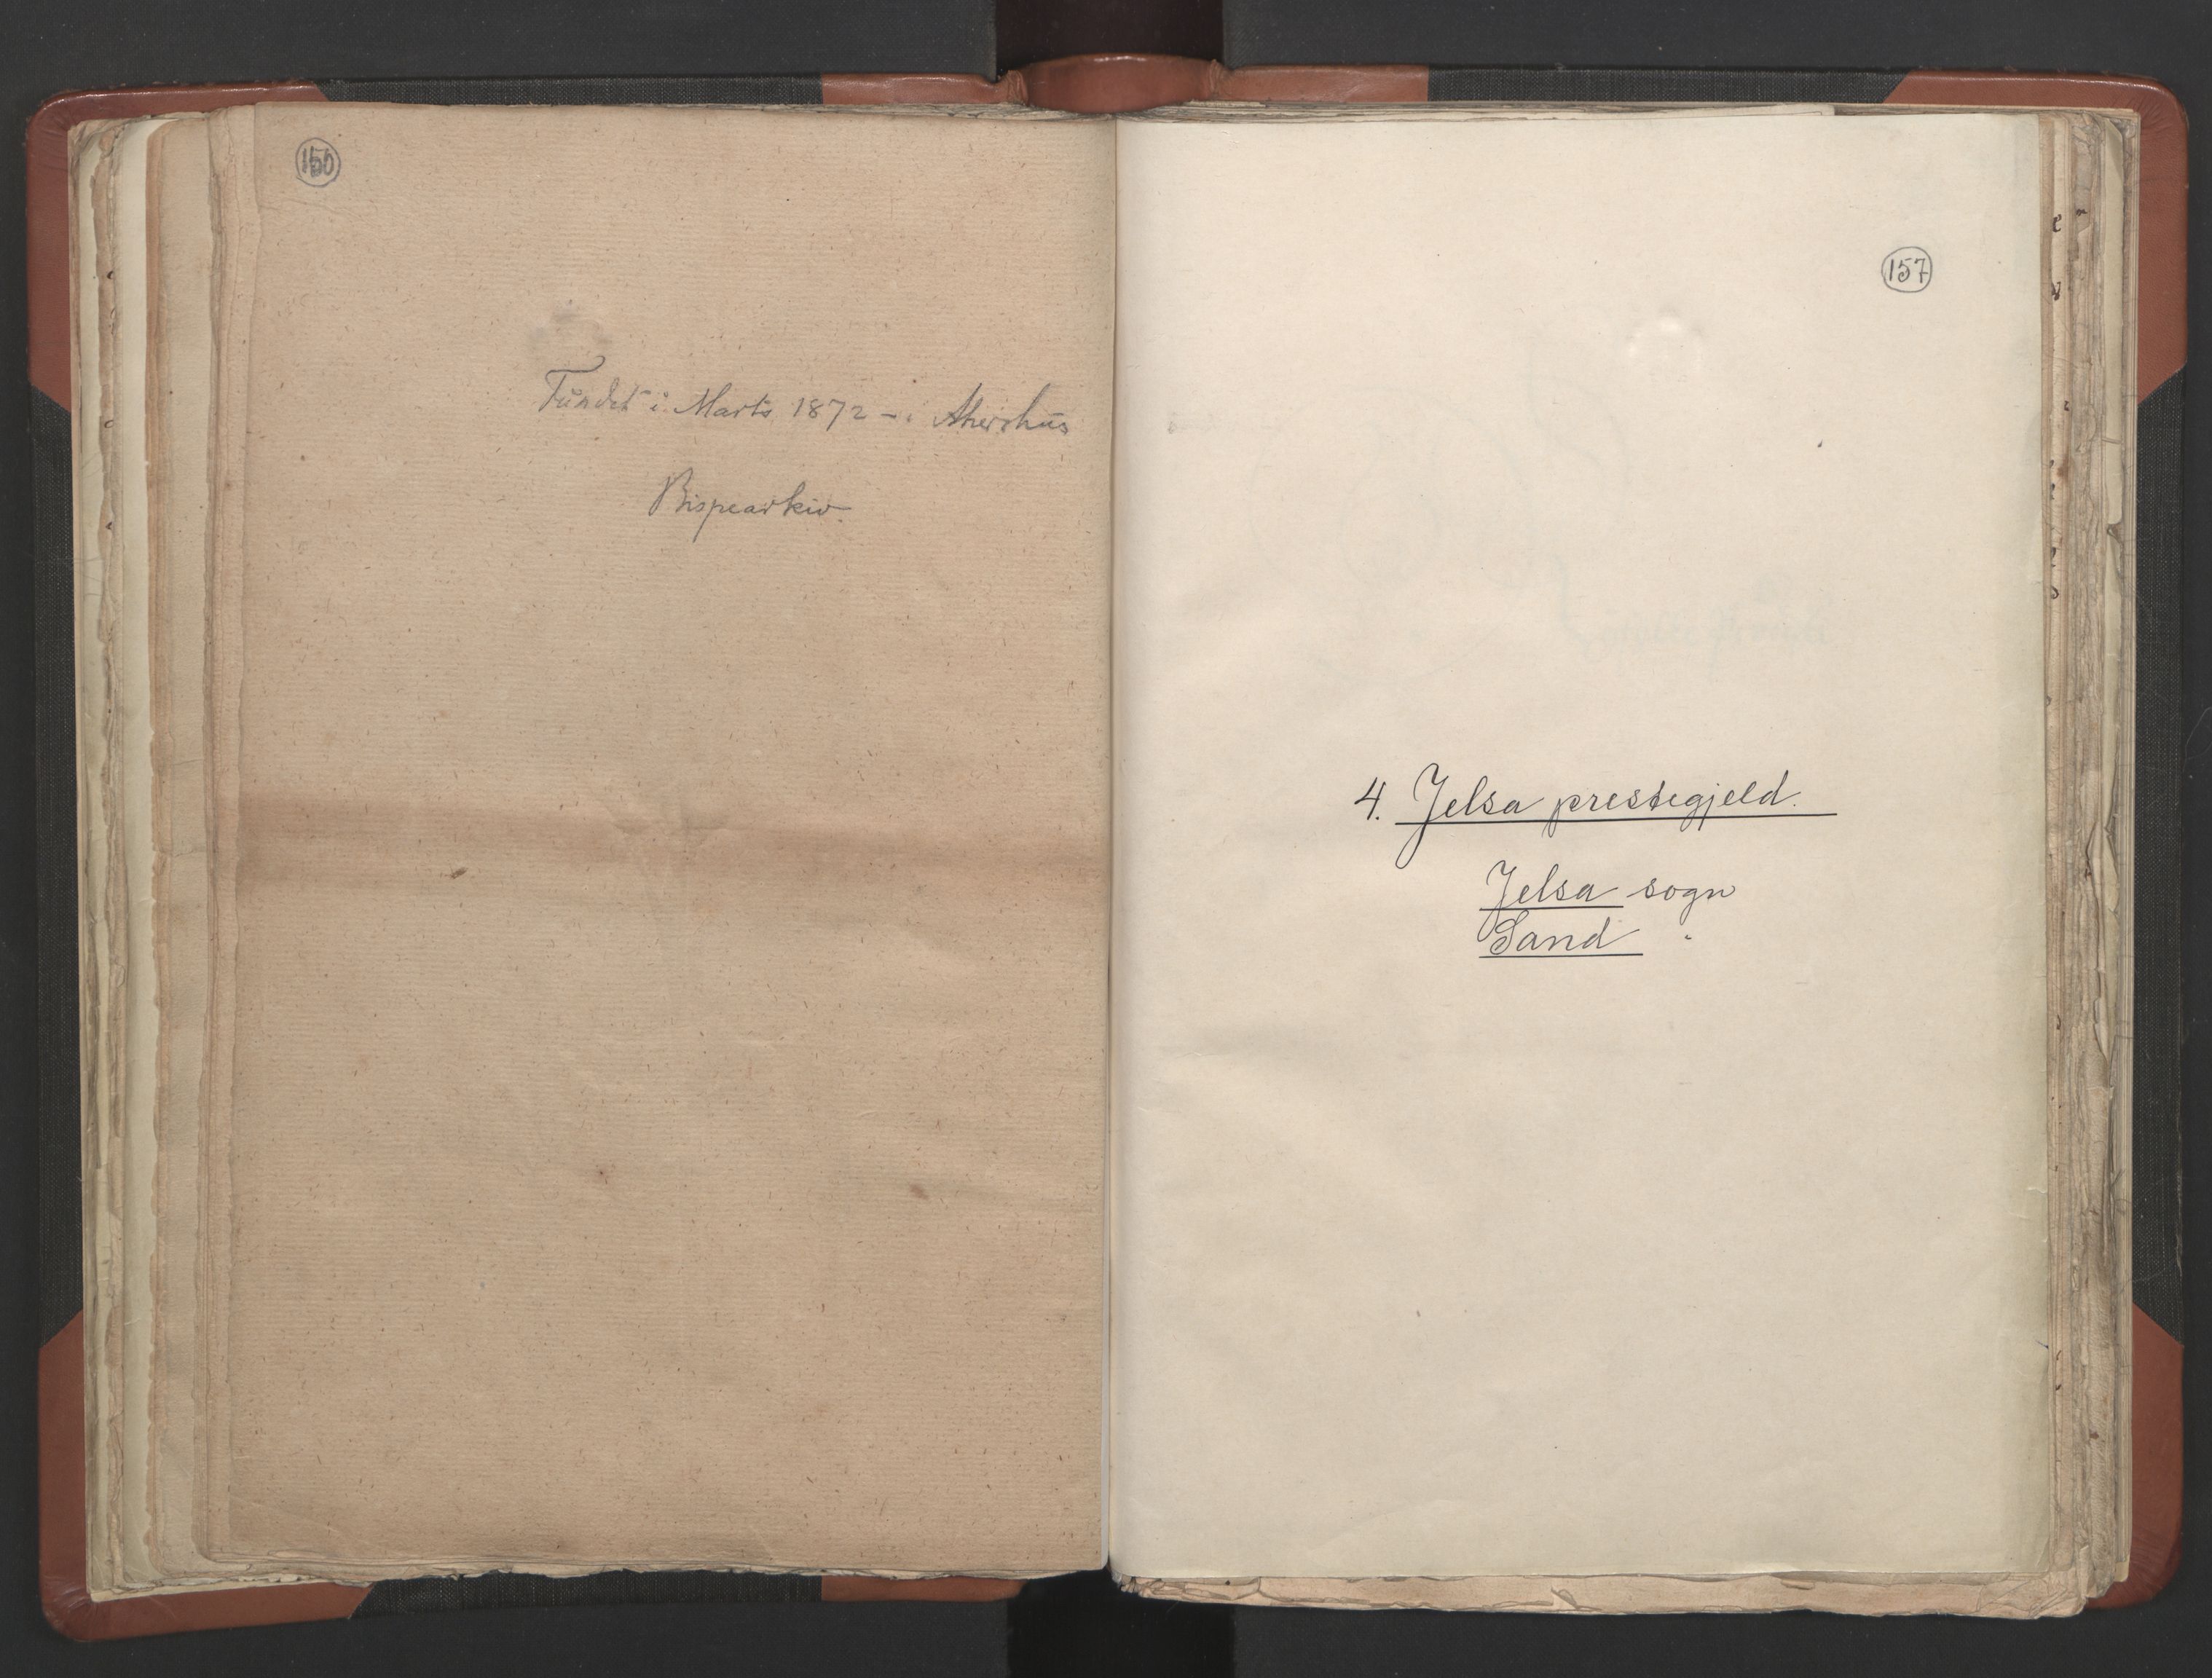 156
Fundet i Marts 1872 - i Akershus
Bispearkiv.
157
4. Jelsa prestegjeld.
Jelsa sogn
Sand "